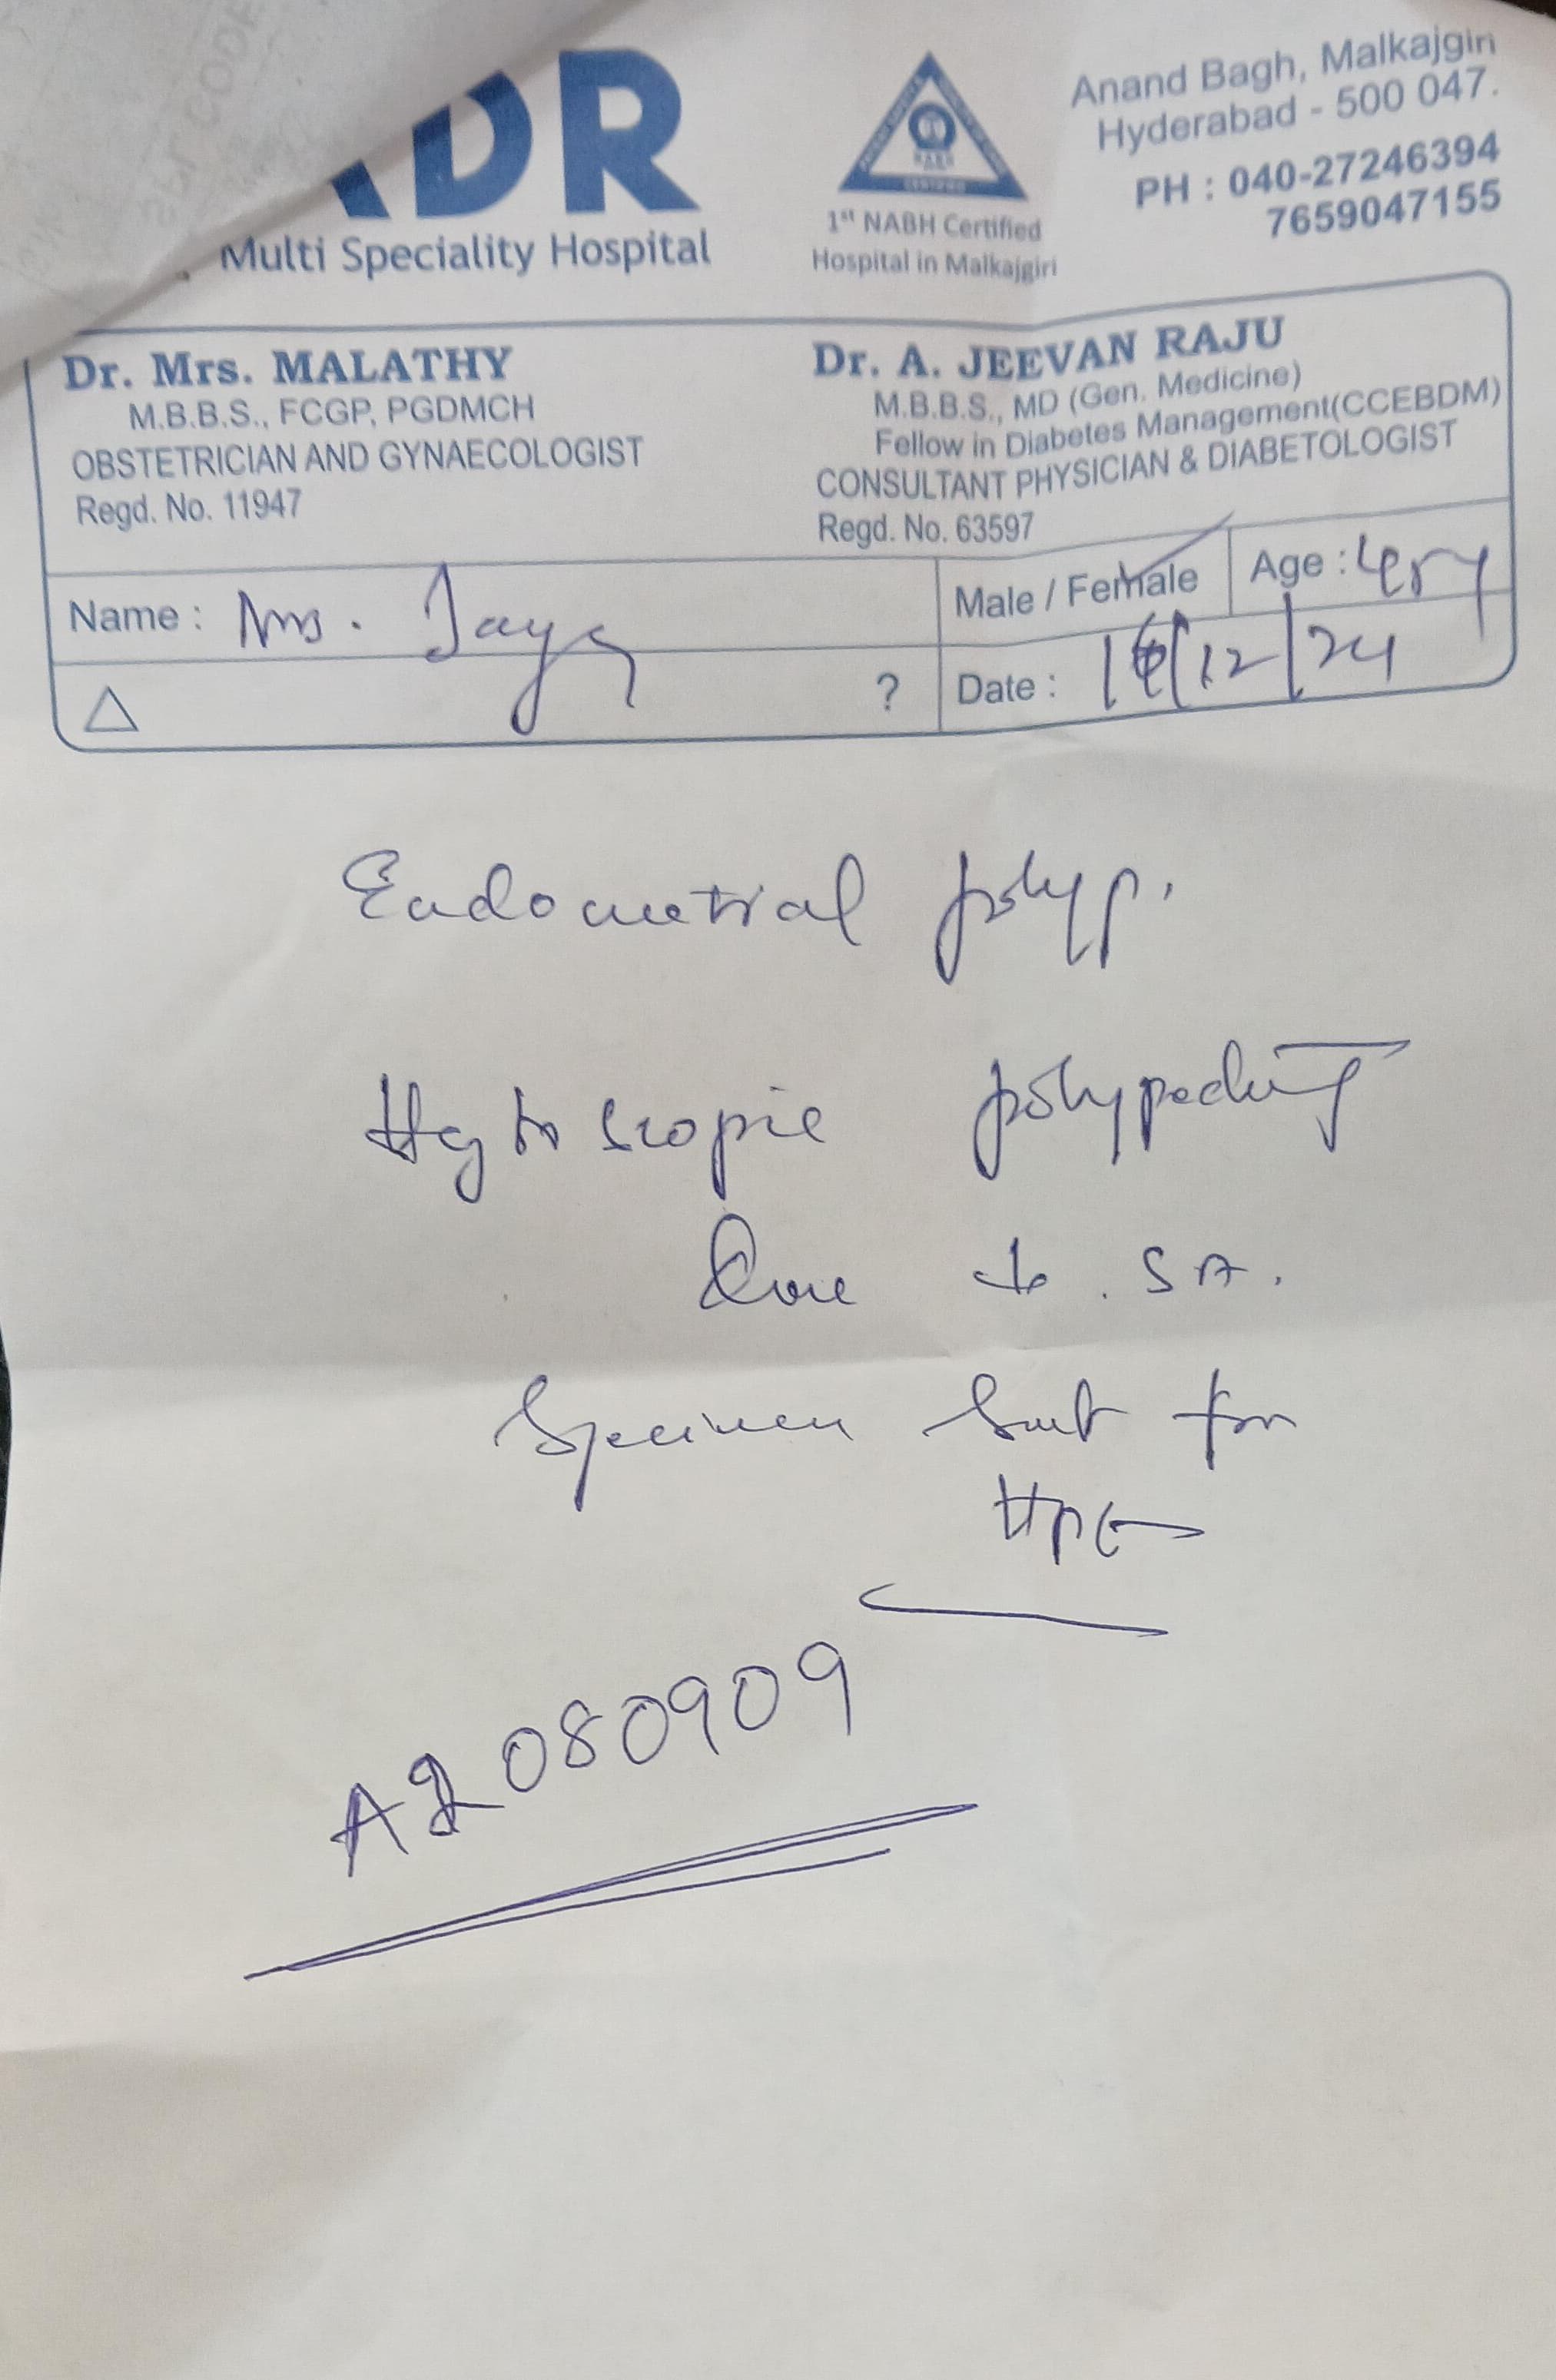 DR
Multi Speciality Hospital
1st NABH Certified
Hospital in Malkajgiri
Anand Bagh, Malkajgiri
Hyderabad - 500 047.
PH : 040-27246394
7659047155
Dr. Mrs. MALATHY
M.B.B.S., FCGP, PGDMCH
OBSTETRICIAN AND GYNAECOLOGIST
Regd. No. 11947
Dr. A. JEEVAN RAJU
M.B.B.S., MD (Gen. Medicine)
Fellow in Diabetes Management(CCEBDM)
CONSULTANT PHYSICIAN & DIABETOLOGIST
Regd. No. 63597
Name : Mrs. Jaya
Male / Female
Age :
? Date : /12/24
Endometrial polyp.
polypectomy
Done . SA.
Specimen Sent for
HPE
A2080909